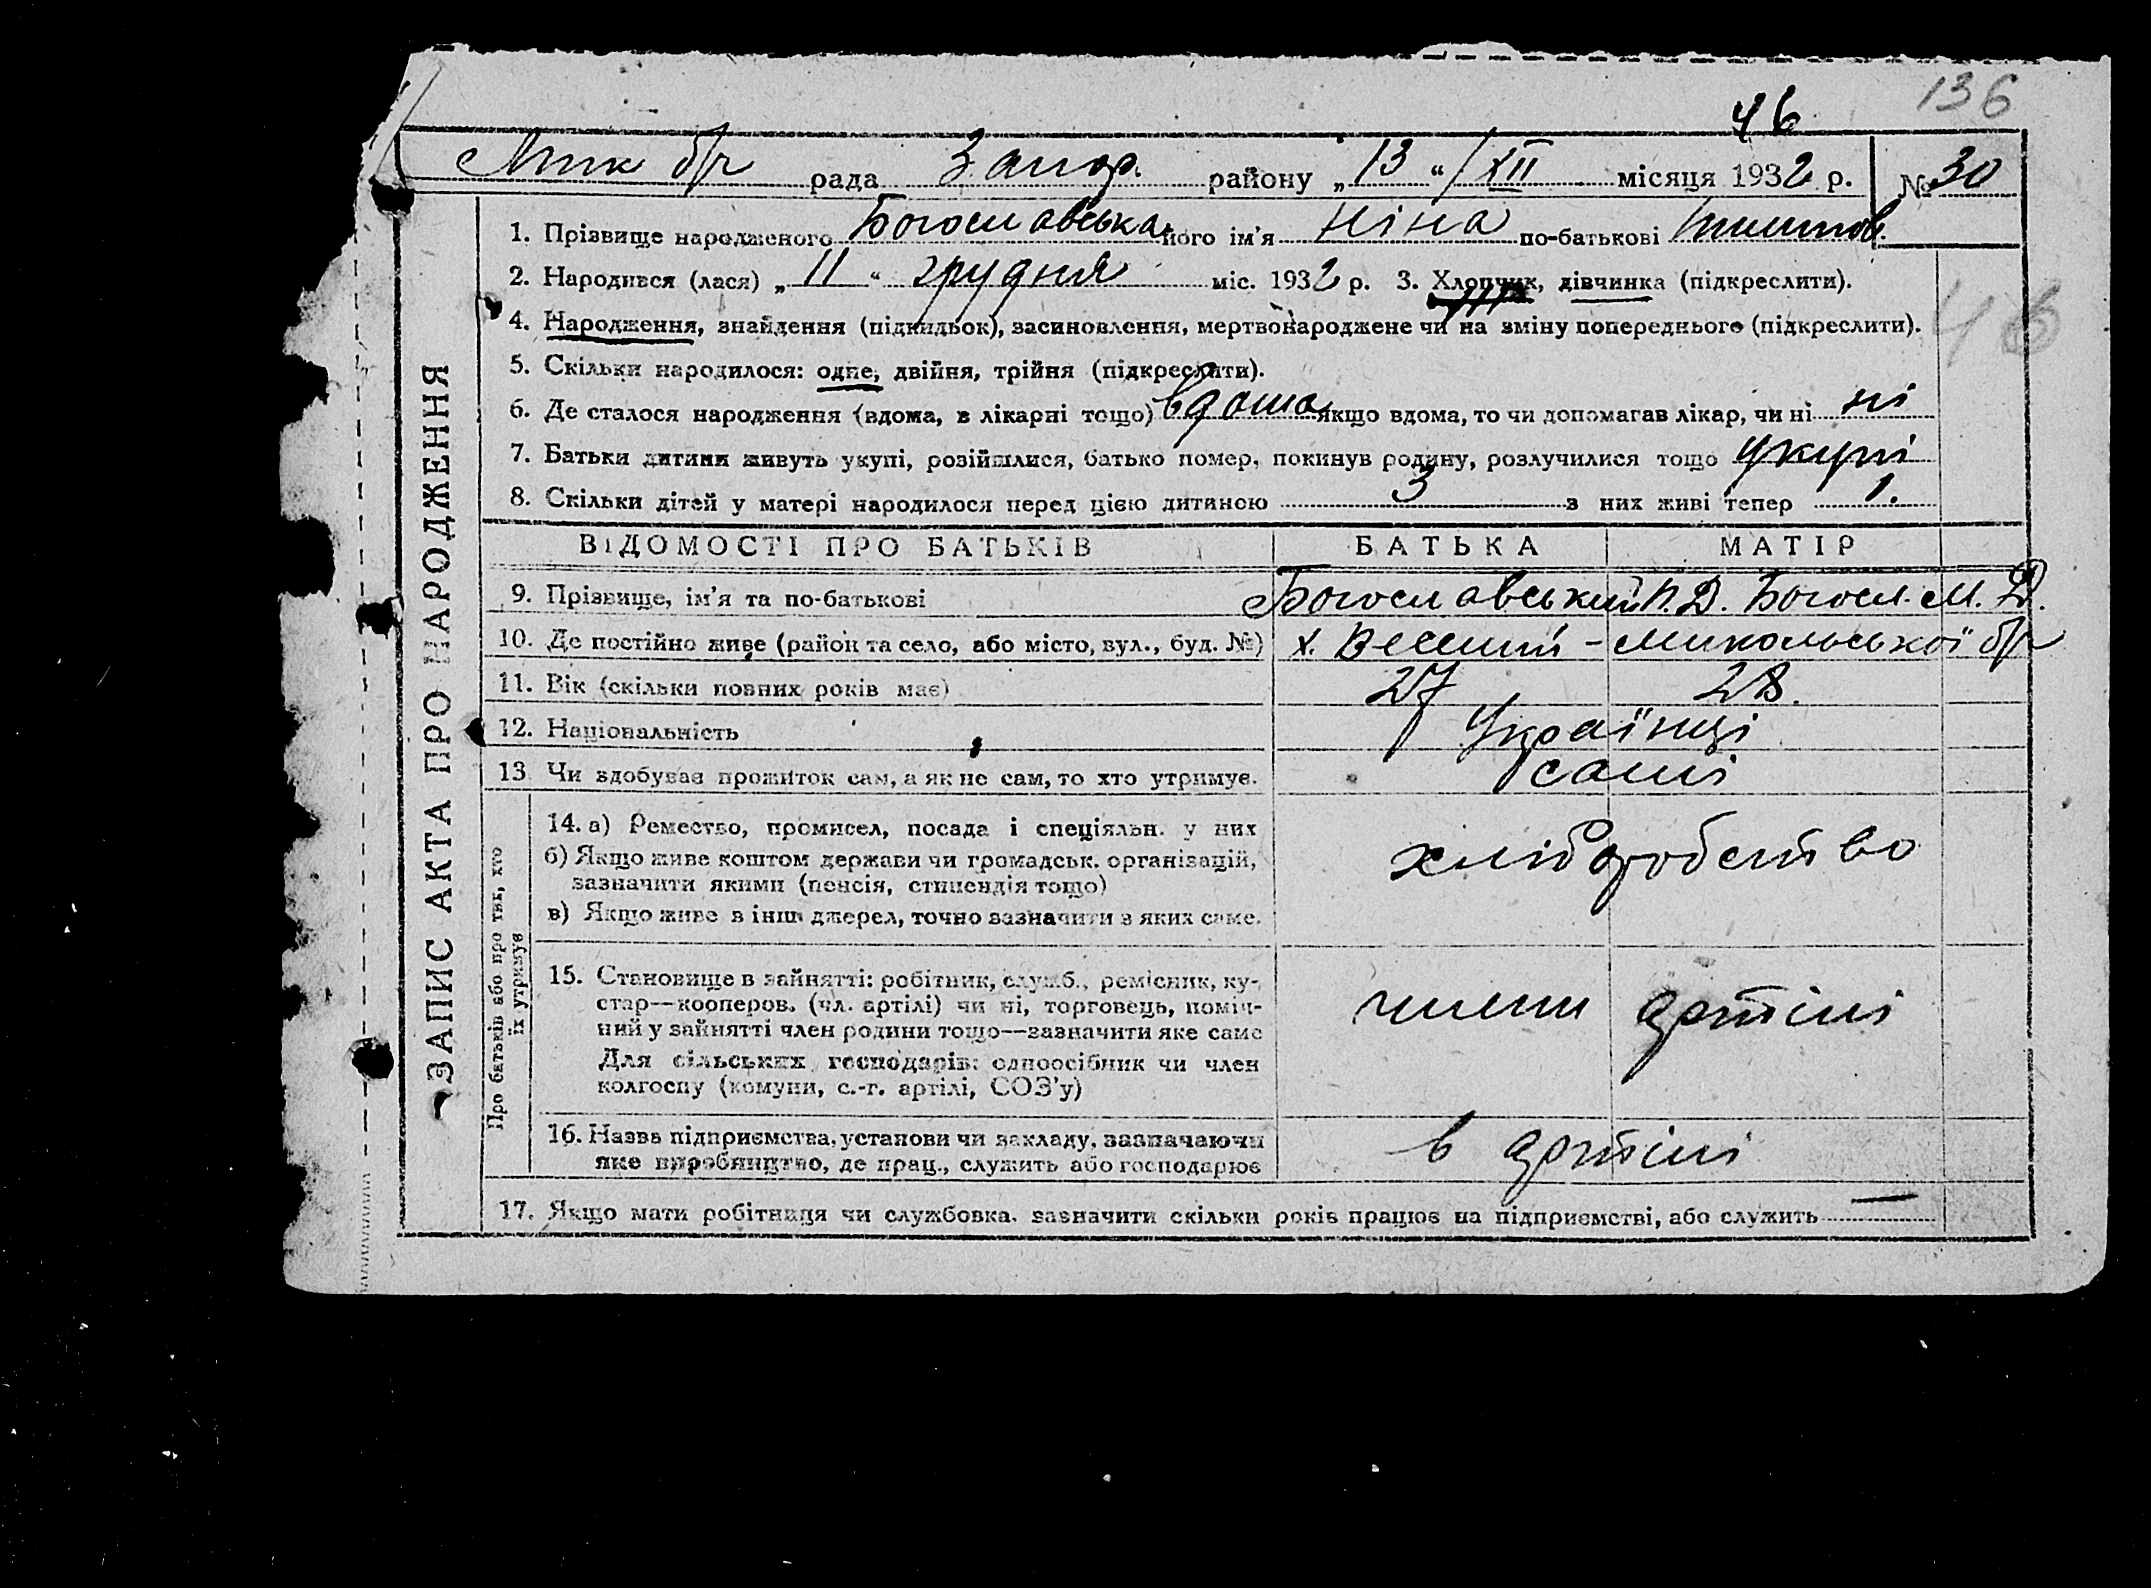 136
46
Мик б/р рада Запор. району „13“ /XII місяця 1932 р. № 30
ЗАПИС АКТА ПРО НАРОДЖЕННЯ
1. Прізвище народженого Богославська його ім'я Ніна по-батькові
2. Народився (лася) „11“ грудня міс. 1932 р. 3. Хлопчик, дівчинка (підкреслити).
4. Народження, знайдення (підкидьок), засиновлення, мертвонароджене чи на зміну попереднього (підкреслити).
46
5. Скільки народилося: одне, двійня, трійня (підкреслити).
6. Де сталося народження (вдома, в лікарні тощо) вдома якщо вдома, то чи допомагав лікар, чи ні ні
7. Батьки дитини живуть укупі, розійшлися, батько помер, покинув родину, розлучилися тощо укупі
8. Скільки дітей у матері народилося перед цією дитиною 3 з них живі тепер 1.
ВІДОМОСТІ ПРО БАТЬКІВ БАТЬКА МАТІР
9. Прізвище, ім'я та по-батькові Богославський П. Д. Богосл. М. Д.
10. Де постійно живе (район та село, або місто, вул., буд. №) х. Веселий - Микольської б/р
11. Вік (скільки повних років має) 27 28.
12. Національність Українці
13 Чи здобуває прожиток сам, а як не сам, то хто утримує. самі
Про батьків або про тих, хто
їх утримує
14. а) Ремество, промисел, посада і спеціяльн. у них
б) Якщо живе коштом держави чи громадськ. організацій,
зазначити якими (пенсія, стипендія тощо)
в) Якщо живе в інш. джерел, точно зазначити з яких саме.
хліборобство
15. Становище в зайнятті: робітник, служб., ремісник, ку-
стар—кооперов. (чл. артілі) чи ні, торговець, поміч-
ний у зайнятті член родини тощо—зазначити яке саме
Для сільських господарів: одноосібник чи член
колгоспу (комуни, с.-г. артілі, СОЗ'у)
члени артілі
16. Назва підприємства, установи чи закладу, зазначаючи
яке виробництво, де прац., служить або господарює
в артілі
17. Якщо мати робітниця чи службовка, зазначити скільки років працює на підприємстві, або служить —